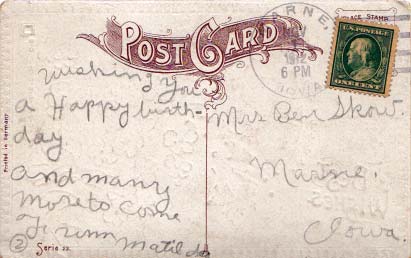 POST CARD
PLACE STAMP
1912
6 PM
IOWA
U.S. POSTAGE
ONE CENT
Wishing You
a Happy birth-
day.
and many
more to come
Matilda
Mrs Ben Skow.
Marne.
Iowa.
Printed in Germany
2
Serie 22.